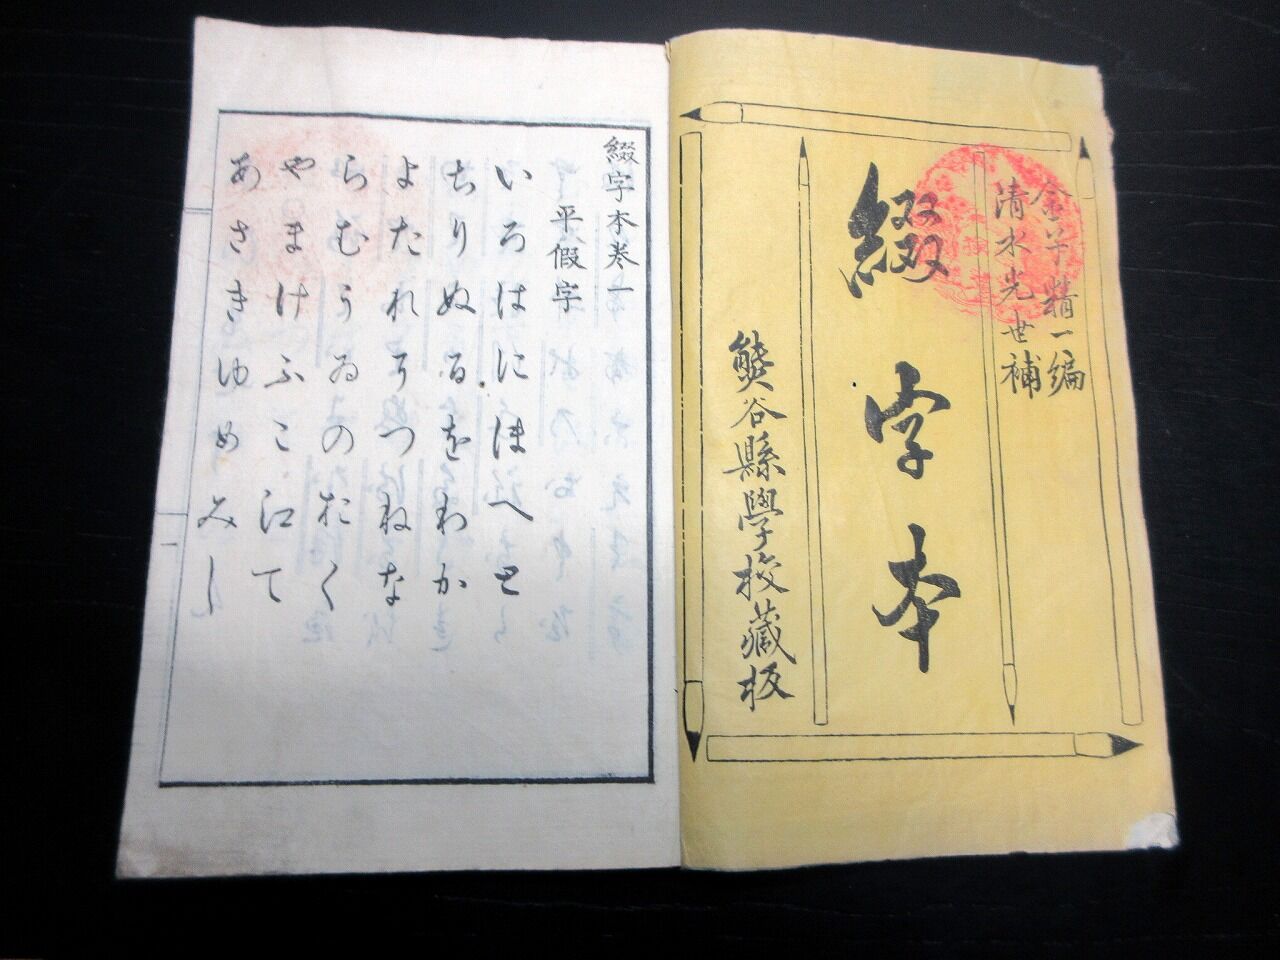 金子精一編
清水光世補
綴字本
熊谷縣學校藏板
綴字本巻一
平假字
いろはにほへと
ちりぬるをわか
よたれそつねな
らむうゐのおく
やまけふこ江て
あさきゆめみし